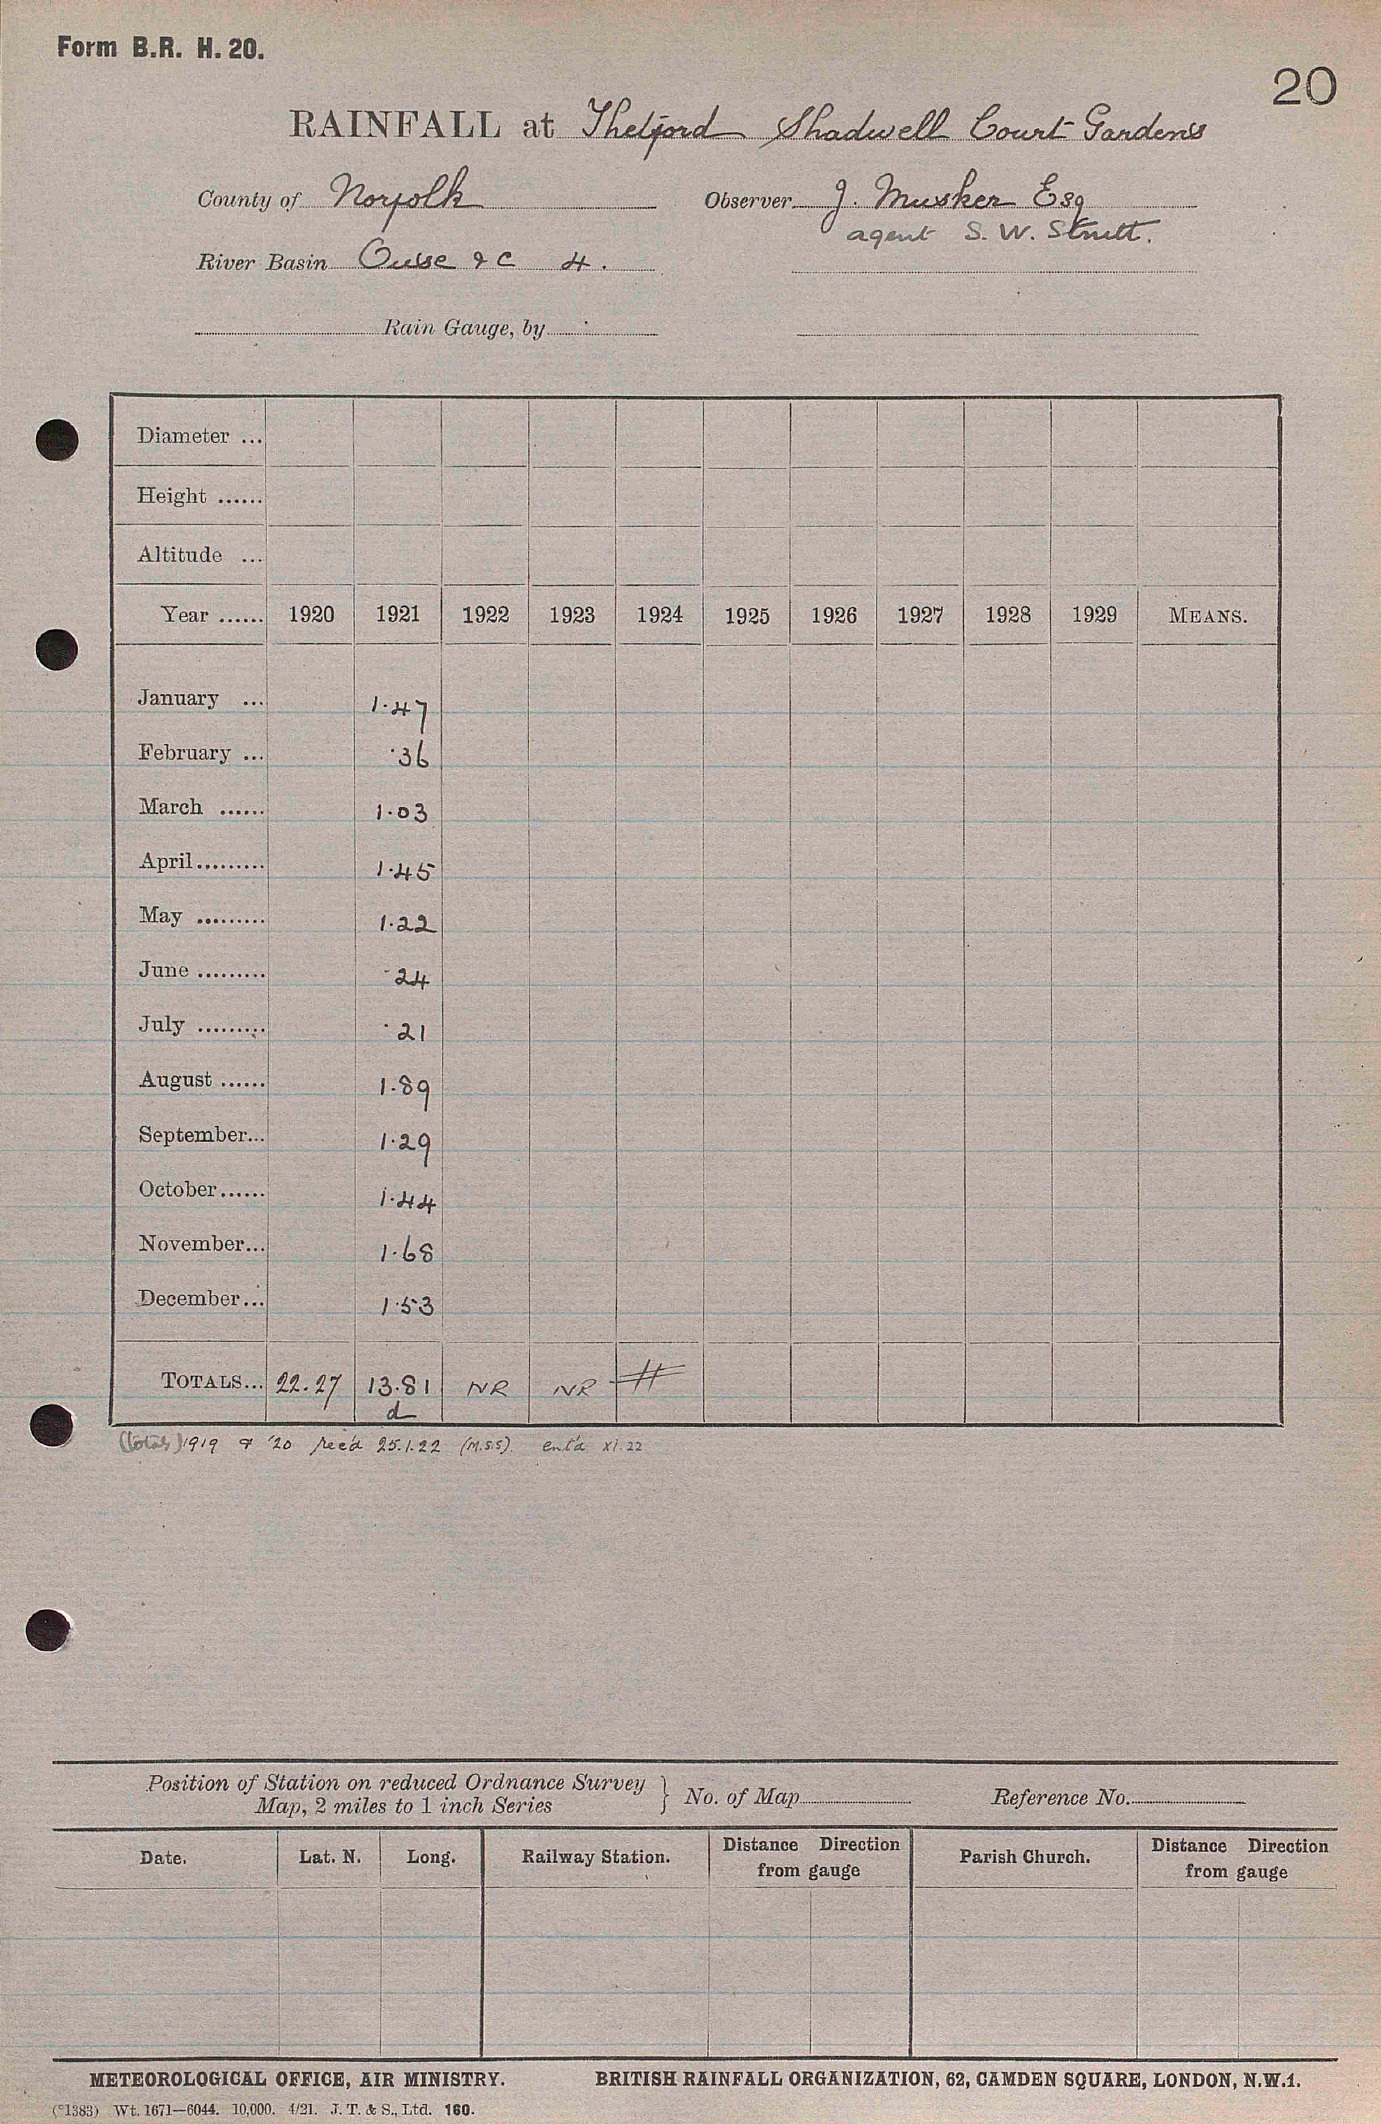 Form B.R. H. 20.
20
RAINFALL at Thetford Shadwell Court Gardens
County of Norfolk Observer J. Musker Esq
agent S. W. Strutt.
River Basin Ouse & C 4.
Rain Gauge, by
Diameter ...
Height ......
Altitude ...
Year ...... 1920 1921 1922 1923 1924 1925 1926 1927 1928 1929 MEANS.
January ... 1.47
February ... .36
March ...... 1.03
April......... 1.45
May ......... 1.22
June ......... .24
July ......... .21
August ...... 1.89
September... 1.29
October...... 1.44
November... 1.68
December... 1.53
TOTALS... 22.27 13.81 NR NR
d
(totals) 1919 & '20 rec'd 25.1.22 (M.S.S). ent'd xi.22
Position of Station on reduced Ordnance Survey
Map, 2 miles to 1 inch Series } No. of Map Reference No.
Date. Lat. N. Long. Railway Station. Distance Direction from gauge Parish Church. Distance Direction from gauge
METEOROLOGICAL OFFICE, AIR MINISTRY. BRITISH RAINFALL ORGANIZATION, 62, CAMDEN SQUARE, LONDON, N.W.1.
(*1383) Wt. 1671—6044. 10,000. 4/21. J. T. & S., Ltd. 160.